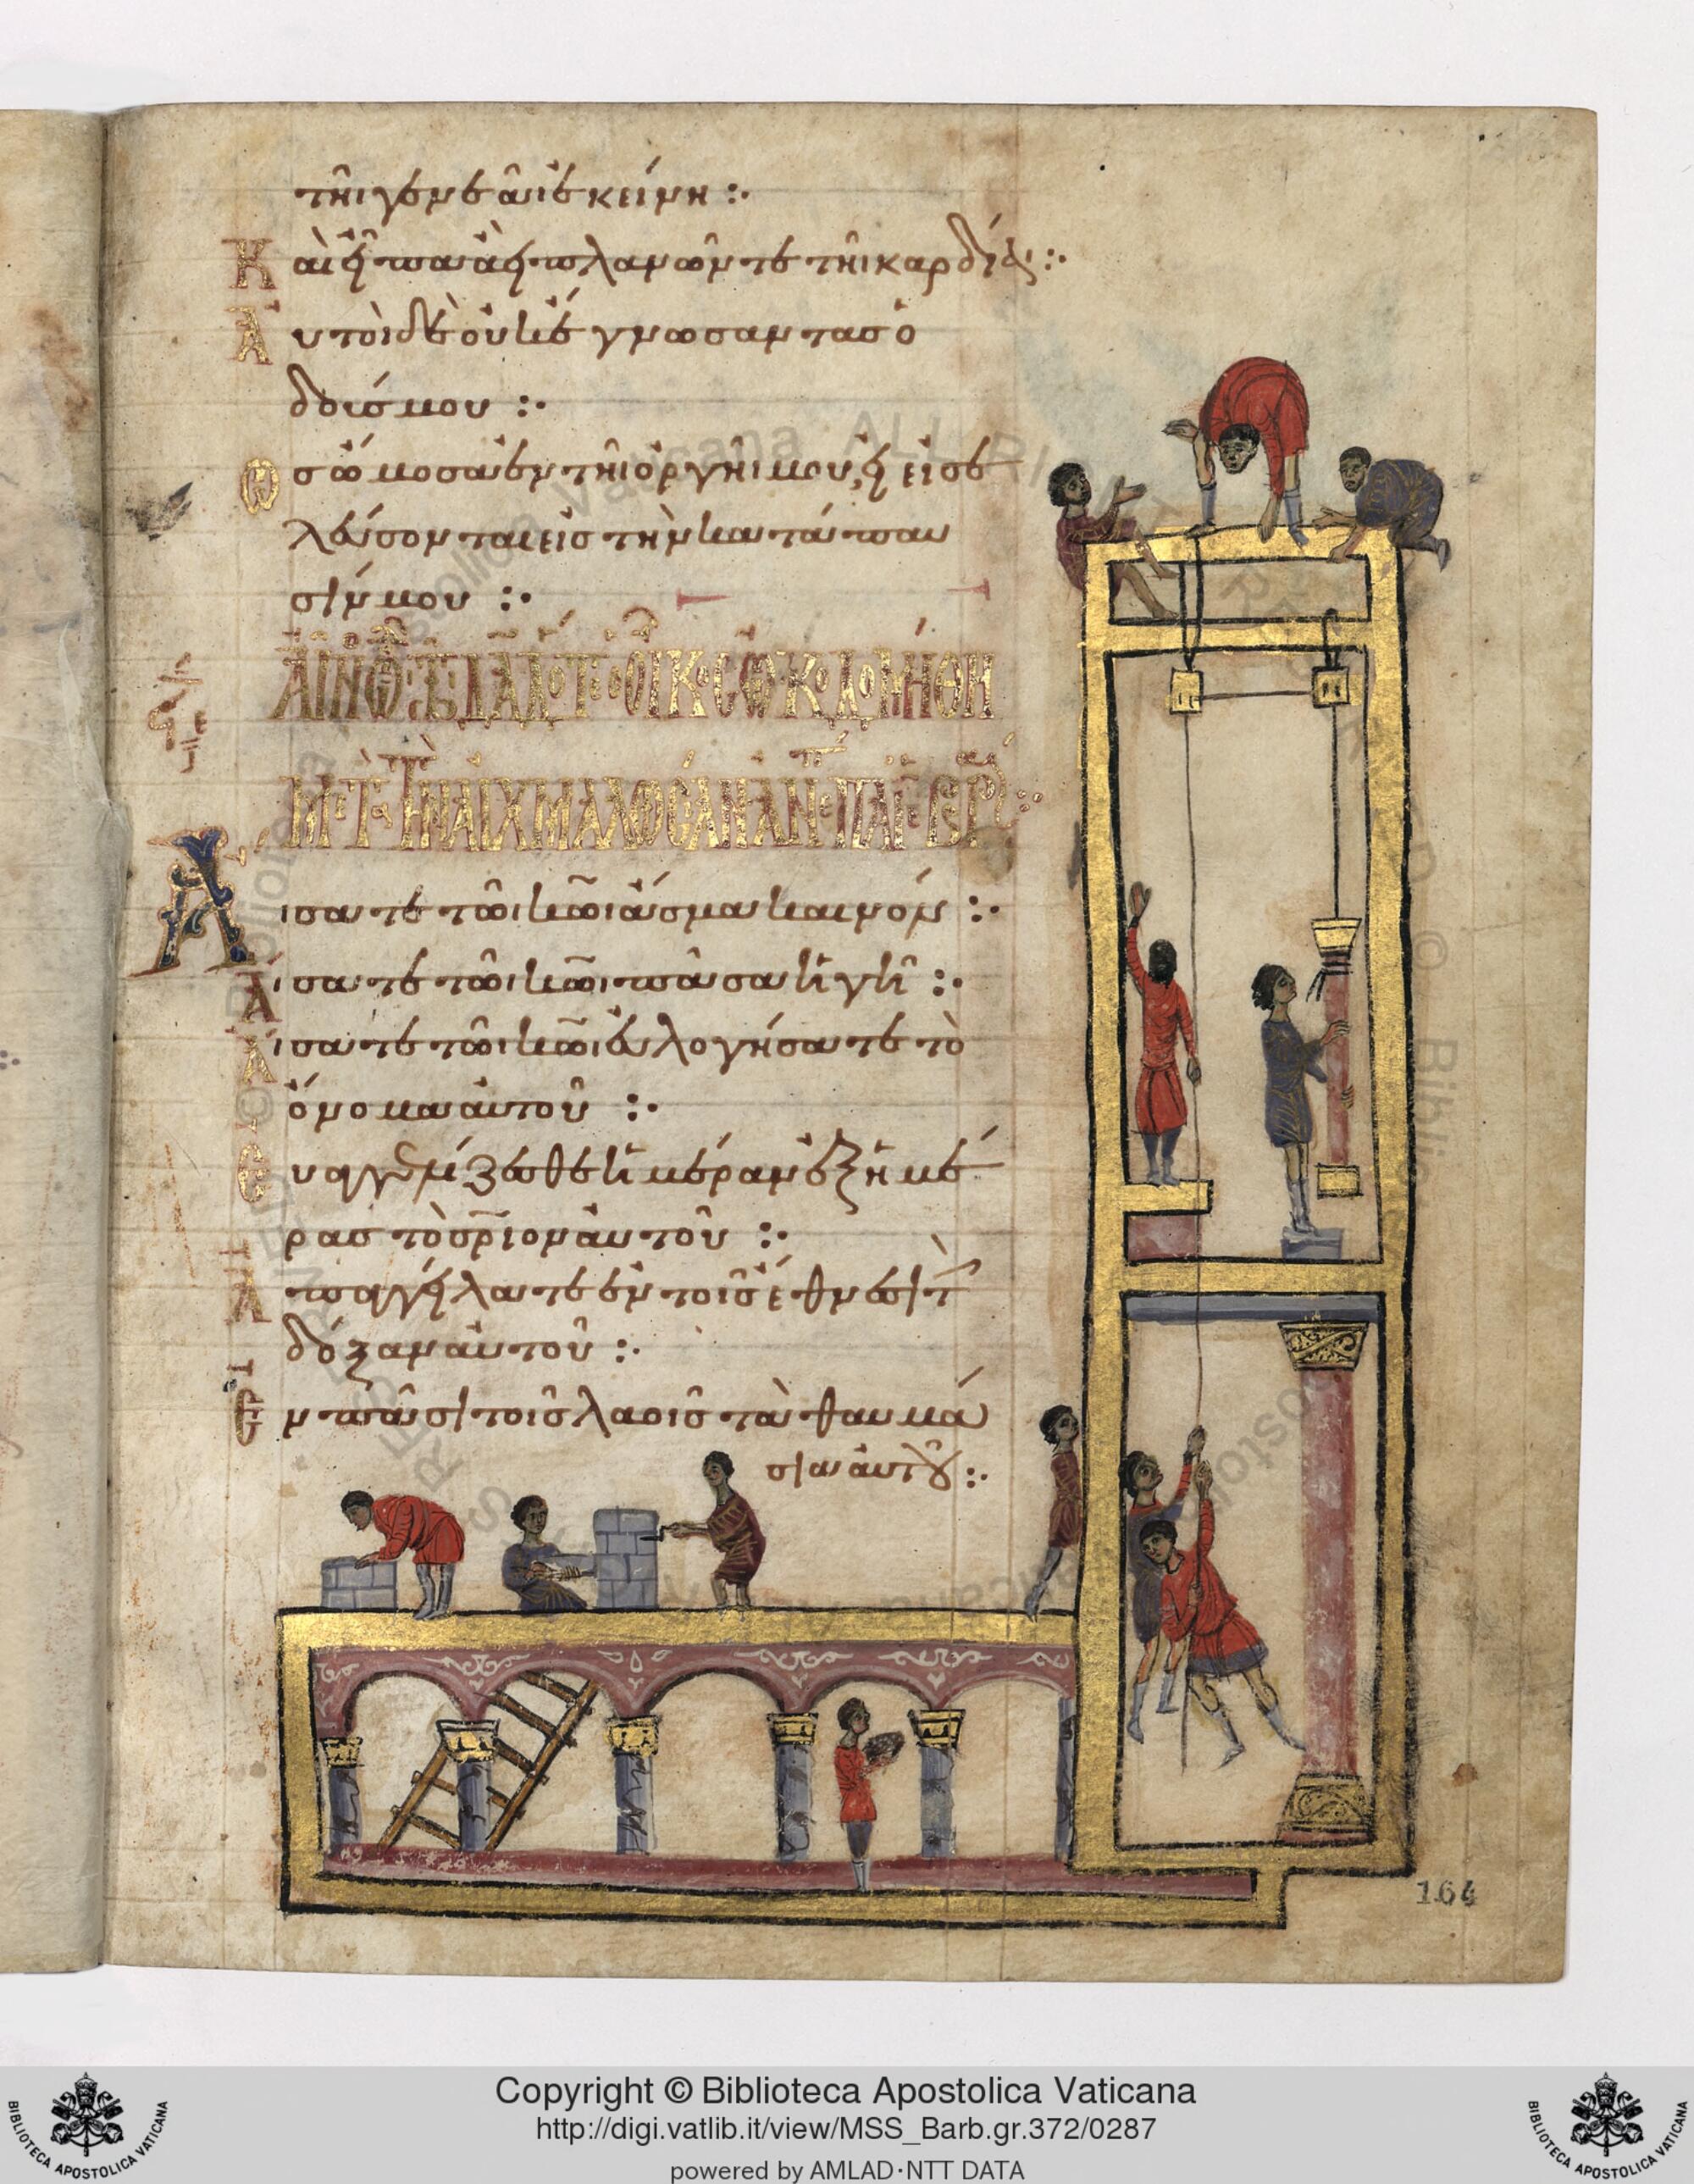 τῆι γενεᾶι ἐκείνη :·
Καὶ εἶπα ἀεὶ πλανῶνται τῆι καρδίᾳ :·
Αὐτοὶ δὲ οὐκ ἔγνωσαν τὰσ ὁ
δούσ μου :·
Ωσ ὤμοσα ἐν τῆι ὀργῆι μου, εἰ εἰσε
λεύσονται εἰσ τὴν κατάπαυ
σίν μου :·
ΑΙΝΟC ΩΔΗC ΤΩ ΔΑΔ ΟΤΕ Ο ΟΙΚΟC ΩΚΟΔΟΜΗΘΗ
ΜΕΤΑ ΤΗΝ ΑΙΧΜΑΛΩCΙΑΝ ΑΝΕΠΙΓΡ
Αισατε τῶι κ̅ω̅ι ἆσμα καινόν :·
Αἴσατε τῶι κ̅ω̅ι πᾶσα ἡ γῆ :·
Αἴσατε τῶι κ̅ω̅ι εὐλογήσατε τὸ
ὄνομα αὐτοῦ :·
Εὐαγγελίζεσθε ἡμέραν ἐξ ἡμέ
ρασ τὸ σ̅ρ̅ιον αὐτοῦ :·
Ἀπαγγείλατε ἐν τοῖσ ἔθνεσι τὴν
δόξαν αὐτοῦ :·
Ἐν πᾶσι τοῖσ λαοῖσ τὰ θαυμά
σια αὐτοῦ :·
164
Copyright © Biblioteca Apostolica Vaticana
http://digi.vatlib.it/view/MSS_Barb.gr.372/0287
powered by AMLAD·NTT DATA
BIBLIOTECA APOSTOLICA VATICANA
BIBLIOTECA APOSTOLICA VATICANA